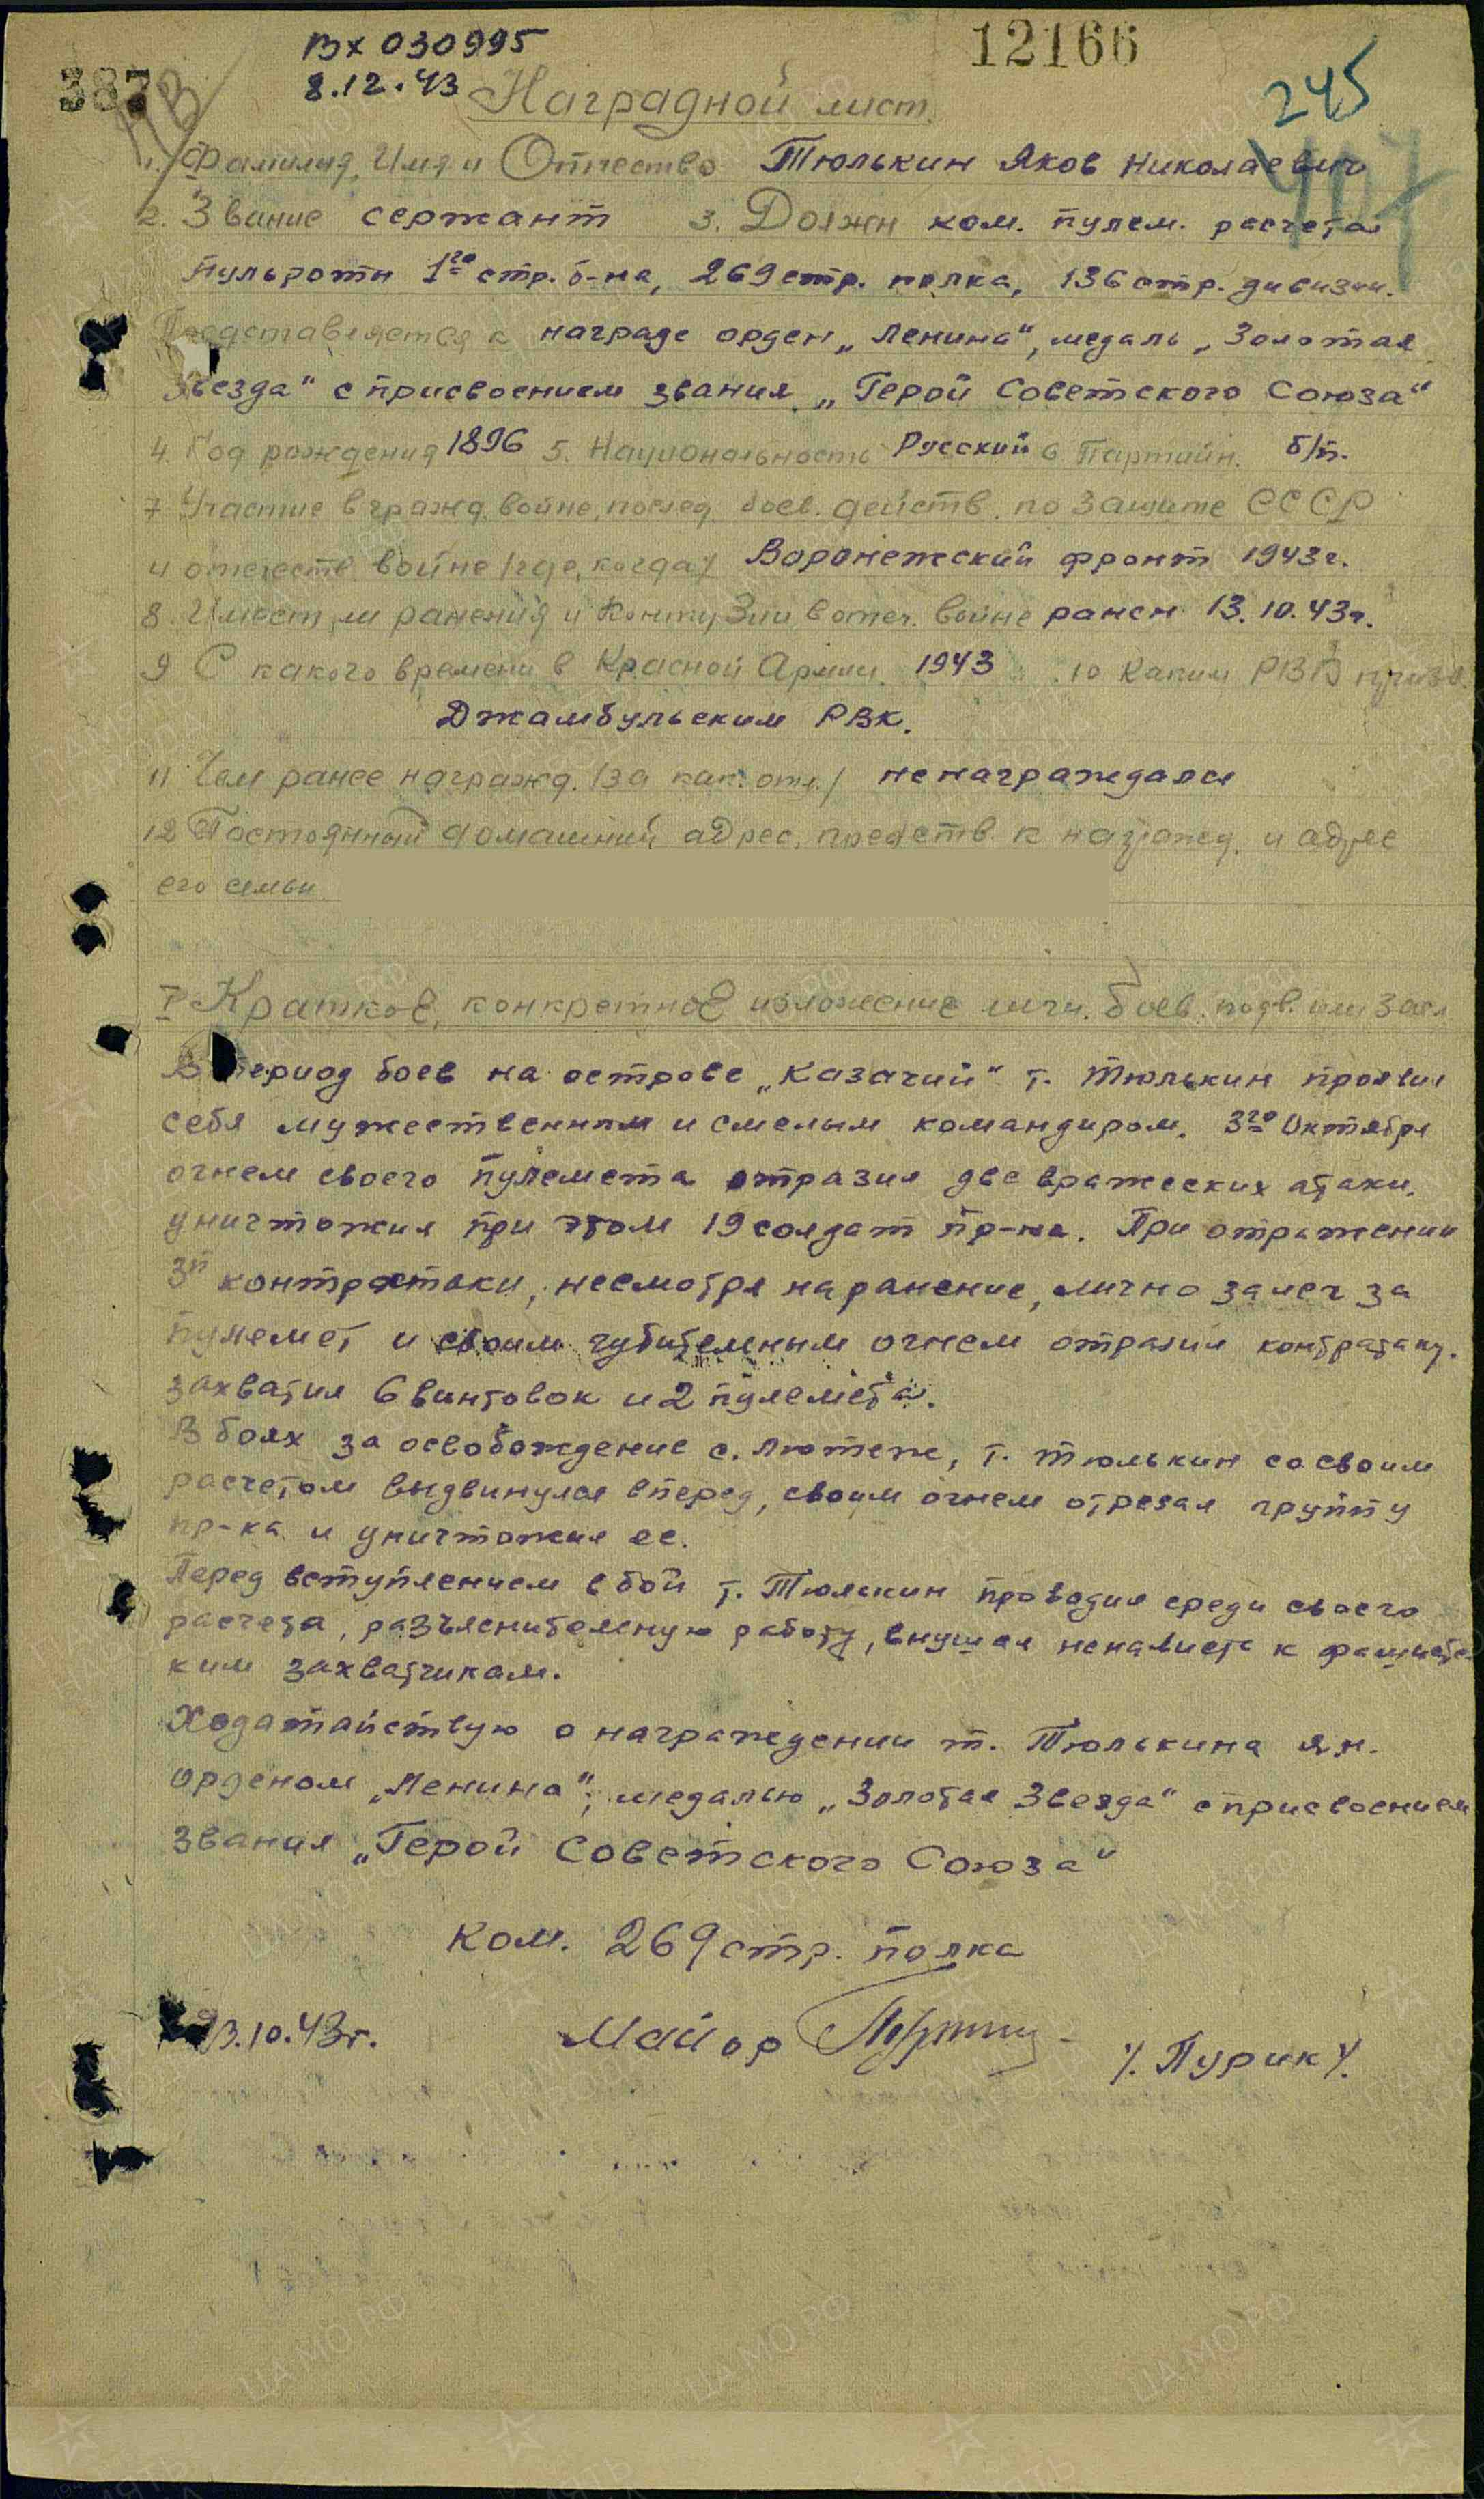 вх 030995
12166
387
8.12.43
НВ
Наградной лист
245
407
1. Фамилия, Имя и Отчество Тюлькин Яков Николаевич
2. Звание сержант 3. Должн ком. пулем. расчета
пульроты 1го стр. б-на, 269 стр. полка, 136 стр. дивизии.
Представляется к награде орден „Ленина“, медаль „Золотая
Звезда“ с присвоением звания „Герой Советского Союза“
4. Год рождения 1896 5. Национальность Русский 6 Партийн. б/п.
7 Участие в гражд. войне, послед. боев. действ. по защите СССР
и отечеств войне /где, когда/ Воронежский фронт 1943г.
8. Имеет ли ранения и контузии в отеч. войне ранен 13.10.43г.
9 С какого времени в Красной Армии. 1943 10 Каким РВК призв.
Джамбульским РВК.
11 Чем ранее награжд. /за как. отл./ не награждался
12 Постоянный домашний адрес, предств. к награжд. и адрес
его семьи
I Краткое, конкретное изложение личн. боев. подв. или засл
В период боев на острове „Казачий“ т. Тюлькин проявил
себя мужественным и смелым командиром. 3го Октября
огнем своего пулемета отразил две вражеских атаки,
уничтожил при этом 19 солдат пр-ка. При отражении
3й контратаки, несмотря на ранение, лично залег за
пулемет и своим губительным огнем отразил контратаку.
захватил 6 винтовок и 2 пулемета.
В боях за освобождение с. Лютеж, т. Тюлькин со своим
расчетом выдвинулся вперед, своим огнем отрезал группу
пр-ка и уничтожил ее.
Перед вступлением в бой т. Тюлькин проводил среди своего
расчета, разъяснительную работу, внушая ненависть к фашистс-
ким захватчикам.
Ходатайствую о награждении т. Тюлькина Я.Н.
орденом „Ленина“, медалью „Золотая Звезда“ с присвоением
звания „Герой Советского Союза“
Ком. 269 стр. полка
23.10.43г. Майор /. Пурик /.